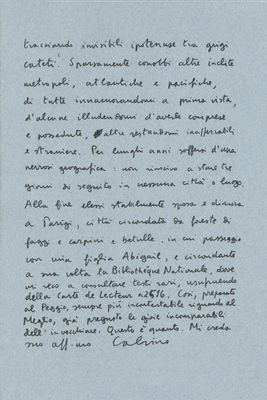 tracciando invisibili ipotenuse tra grigi
cateti. Sparsamente conobbi altre inclite
metropoli, atlantiche e pacifiche,
di tutte innamorandomi a prima vista,
d'alcune illudendomi d'averle comprese
e possedute, altre restandomi inafferrabili
e straniere. Per lunghi anni soffersi d'una
nevrosi geografica: non riuscivo a stare tre
giorni di seguito in nessuna città o luogo.
Alla fine elessi stabilmente sposa e dimora
a Parigi, città circondata da foreste di
faggi e carpini e betulle, in cui passeggio
con mia figlia Abigail, e circondante
a sua volta la Bibliothèque Nationale, dove
mi reco a consultare testi rari, usufruendo
della Carte de Lecteur n.2516. Così, preparato
al Peggio, sempre più incontentabile riguardo al
Meglio, già pregusto le gioie incomparabili
dell'invecchiare. Questo è quanto. Mi creda
suo aff.mo Calvino